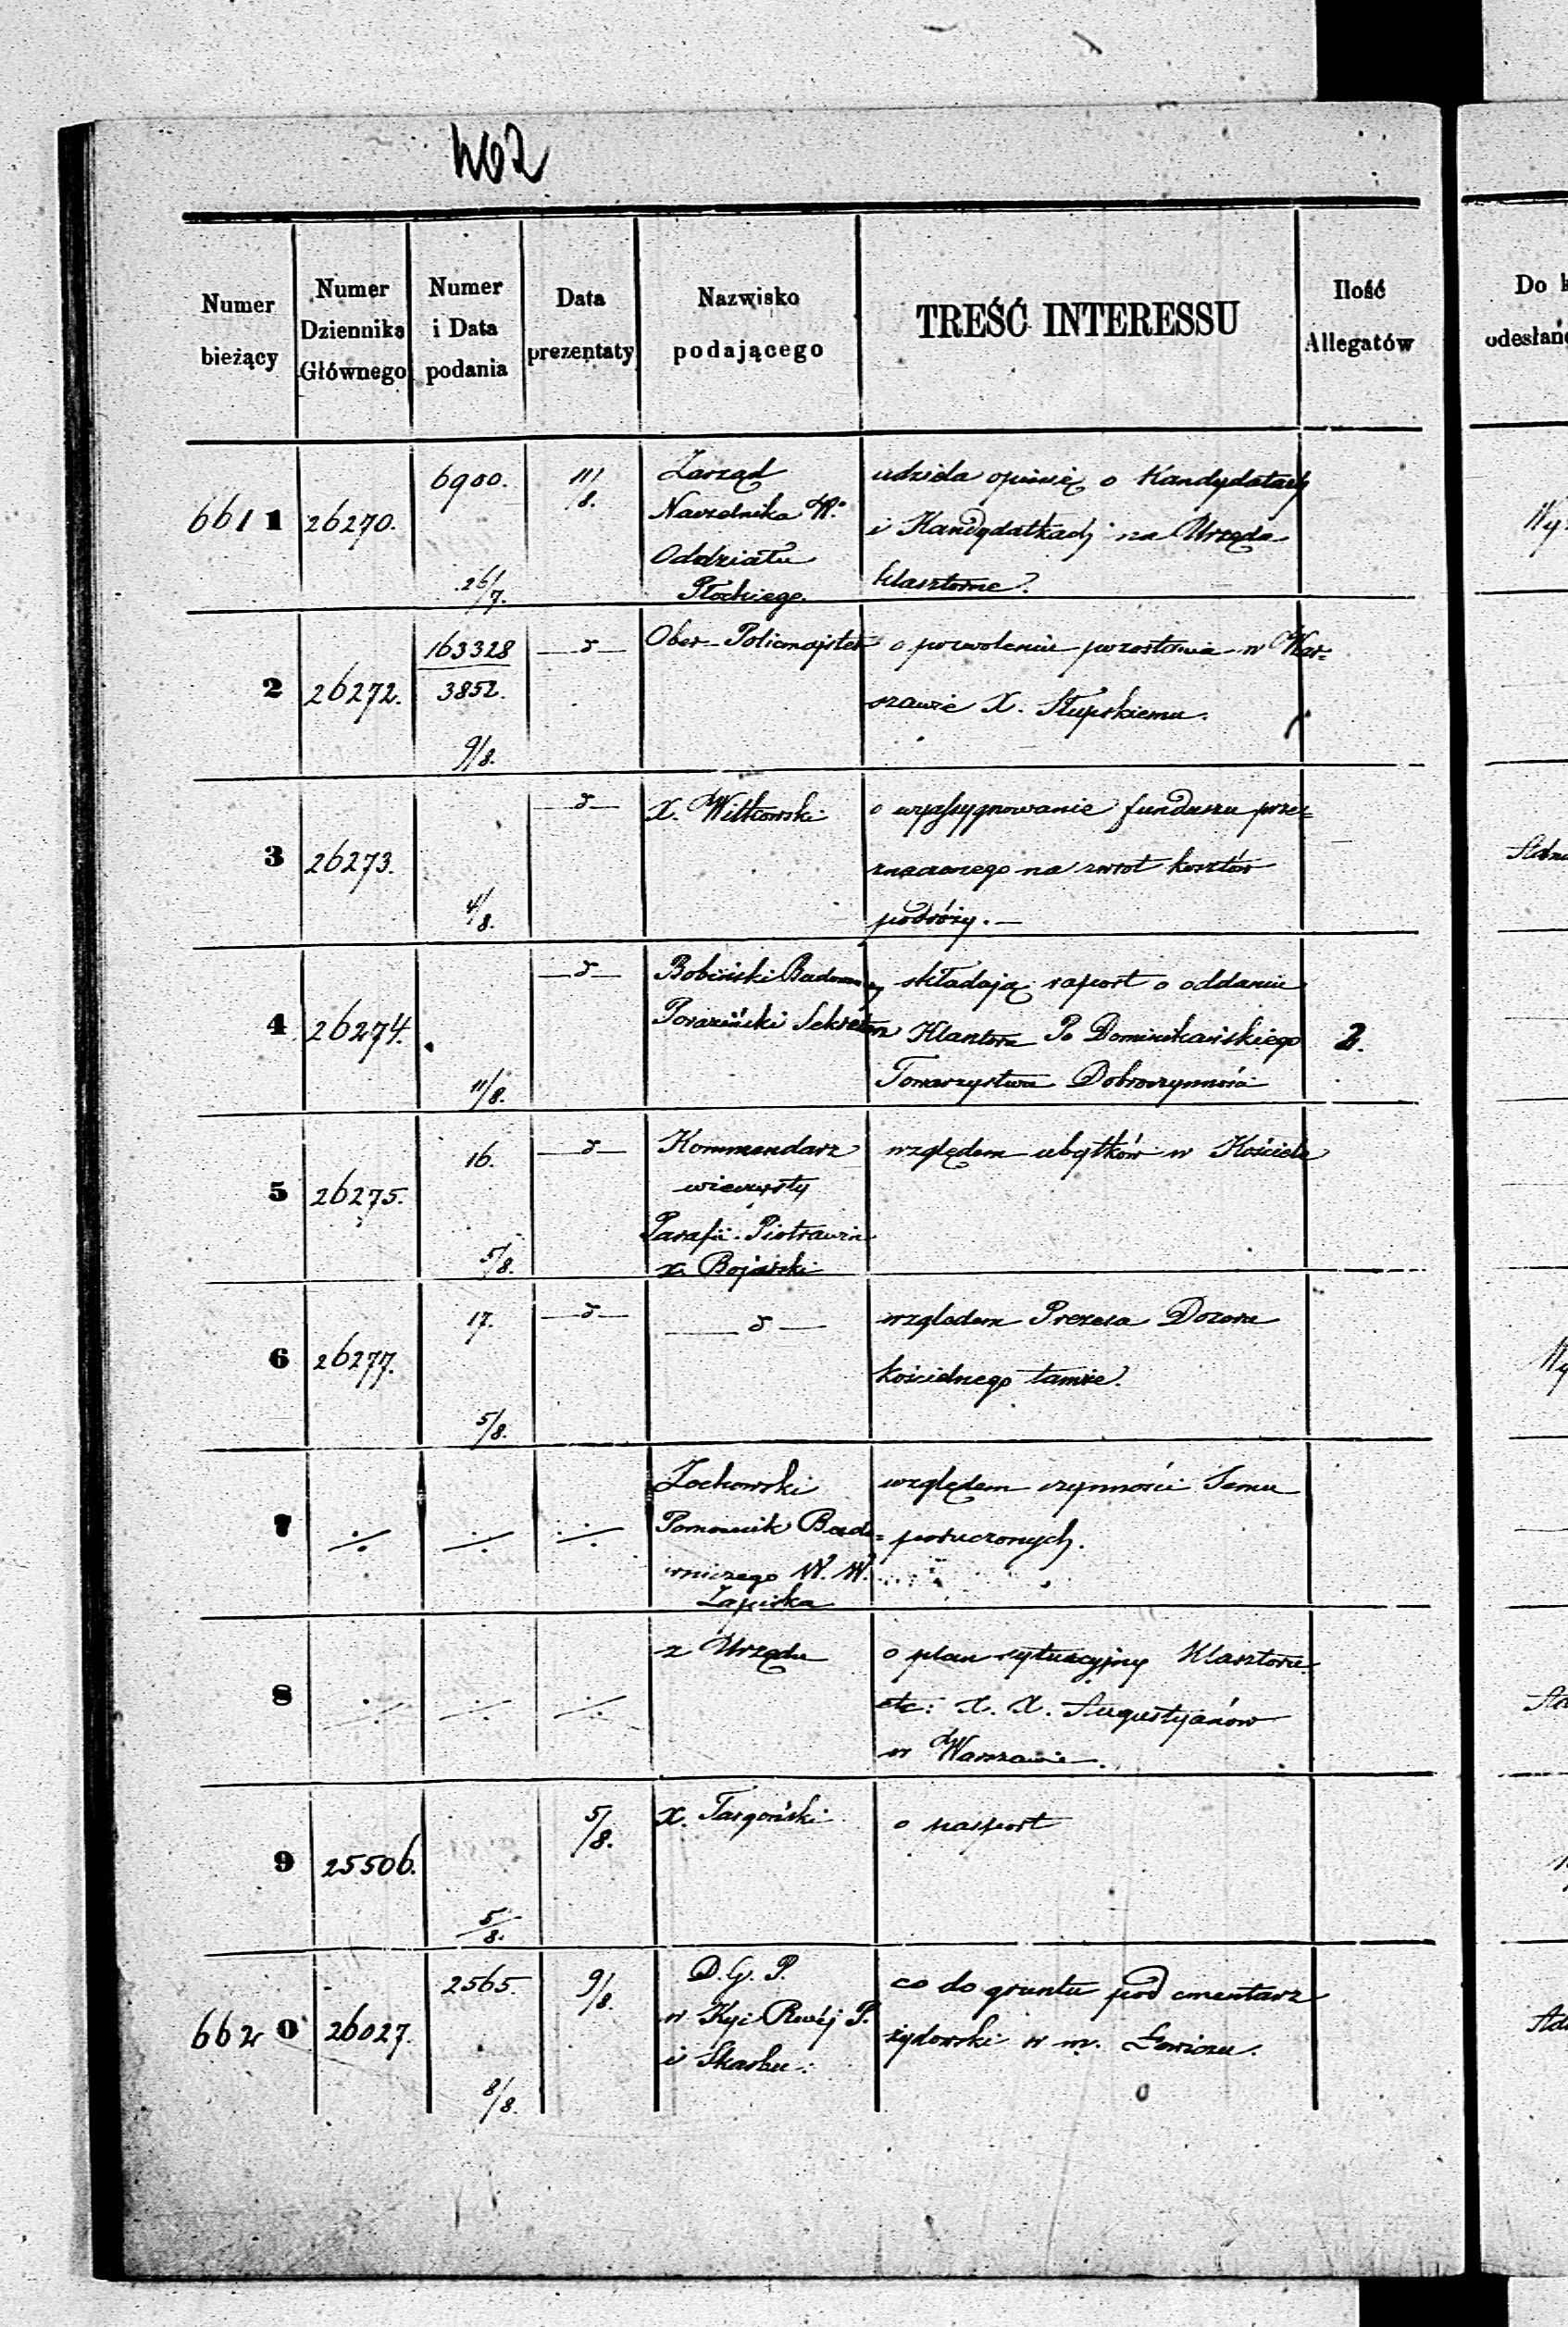 462
Numer bieżący
Numer Dziennika Głównego
Numer i Data podania
Data prezentaty
Nazwisko podającego
TREŚĆ INTERESSU
Ilość Allegatów
Do
odesłan
6611
26270.
6900.
26/7.
11/8.
Zarząd
Naczelnika W.
Oddziału
Płockiego
udziela opinię o Kandydatach
i Kandydatkach na Urzęda
klasztorne.
2
26272.
163328
3852.
9/8.
Ober-Policmajster
o pozwolenie pozostania w War=
szawie X. Słupskiemu.
3
26273.
4/8.
X. Witkowski
o wyassygnowanie funduszu prze=
znaczonego na zwrot kosztów
podróży.—
4
26274.
11/8.
Bobiński Budowniczy
Sekretarz
składają raport o oddaniu
Klasztoru Po Dominikańskiego
Towarzystwu Dobroczynności
2.
5
26275.
16.
5/8.
Kommendarz
wieczysty
Parafii Piotrawin
X. Bojarski
względem ubytków w Kościele
6
26277.
17.
5/8.
względem Prezesa Dozoru
kościelnego tamże.
7
Żochowski
Pomocnik Budo=
wniczego W. W.
Zapiska
względem czynności Jemu
poruczonych.
8
z Urzędu
o plan sytuacyjny Klasztoru
etc: X. X. Augustyanów
w Warszawie.
9
25506.
5/8.
5/8.
X. Targoński
o paszport
6620
26027.
2565.
8/8.
9/8.
D. G. P.
w Kyi Rwéj P.
i Skarbu.
co do gruntu pod cmentarz
żydowski w m. Łowiczu.